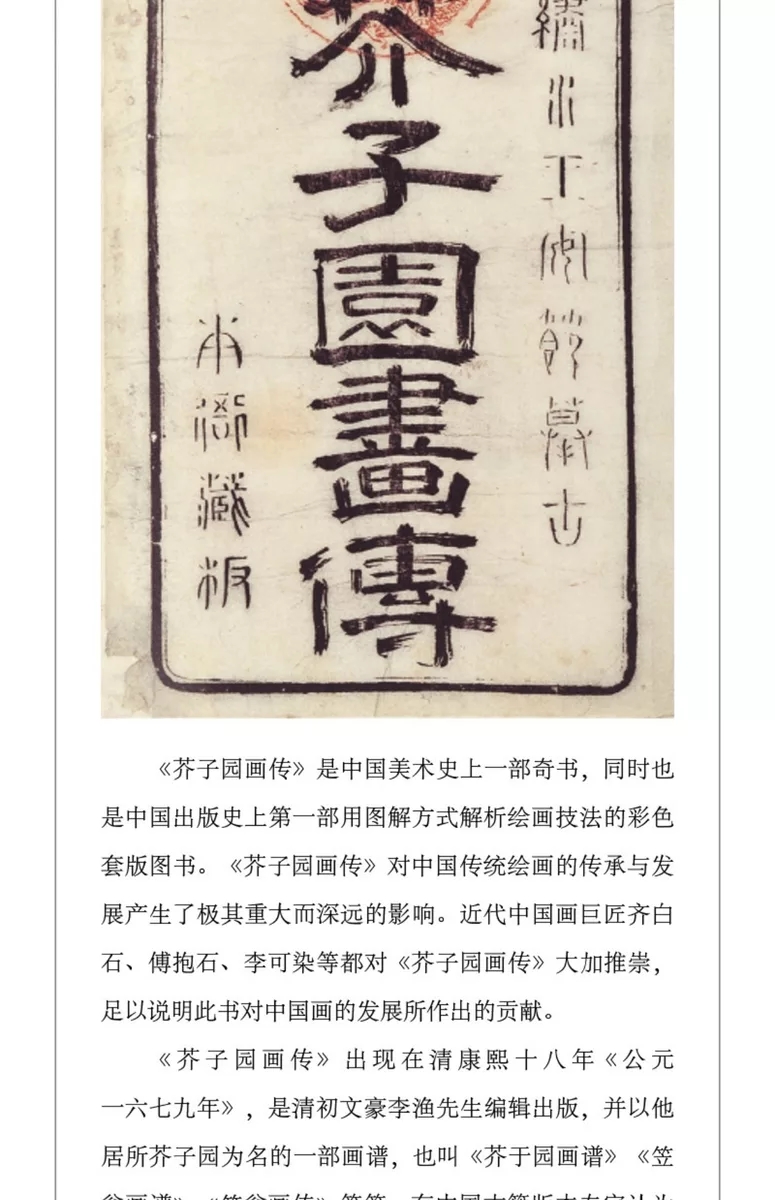 繡水王安節摹古
芥子園畫傳
本衙藏板
《芥子园画传》是中国美术史上一部奇书，同时也
是中国出版史上第一部用图解方式解析绘画技法的彩色
套版图书。《芥子园画传》对中国传统绘画的传承与发
展产生了极其重大而深远的影响。近代中国画巨匠齐白
石、傅抱石、李可染等都对《芥子园画传》大加推崇，
足以说明此书对中国画的发展所作出的贡献。
《芥子园画传》出现在清康熙十八年《公元
一六七九年》，是清初文豪李渔先生编辑出版，并以他
居所芥子园为名的一部画谱，也叫《芥于园画谱》《笠